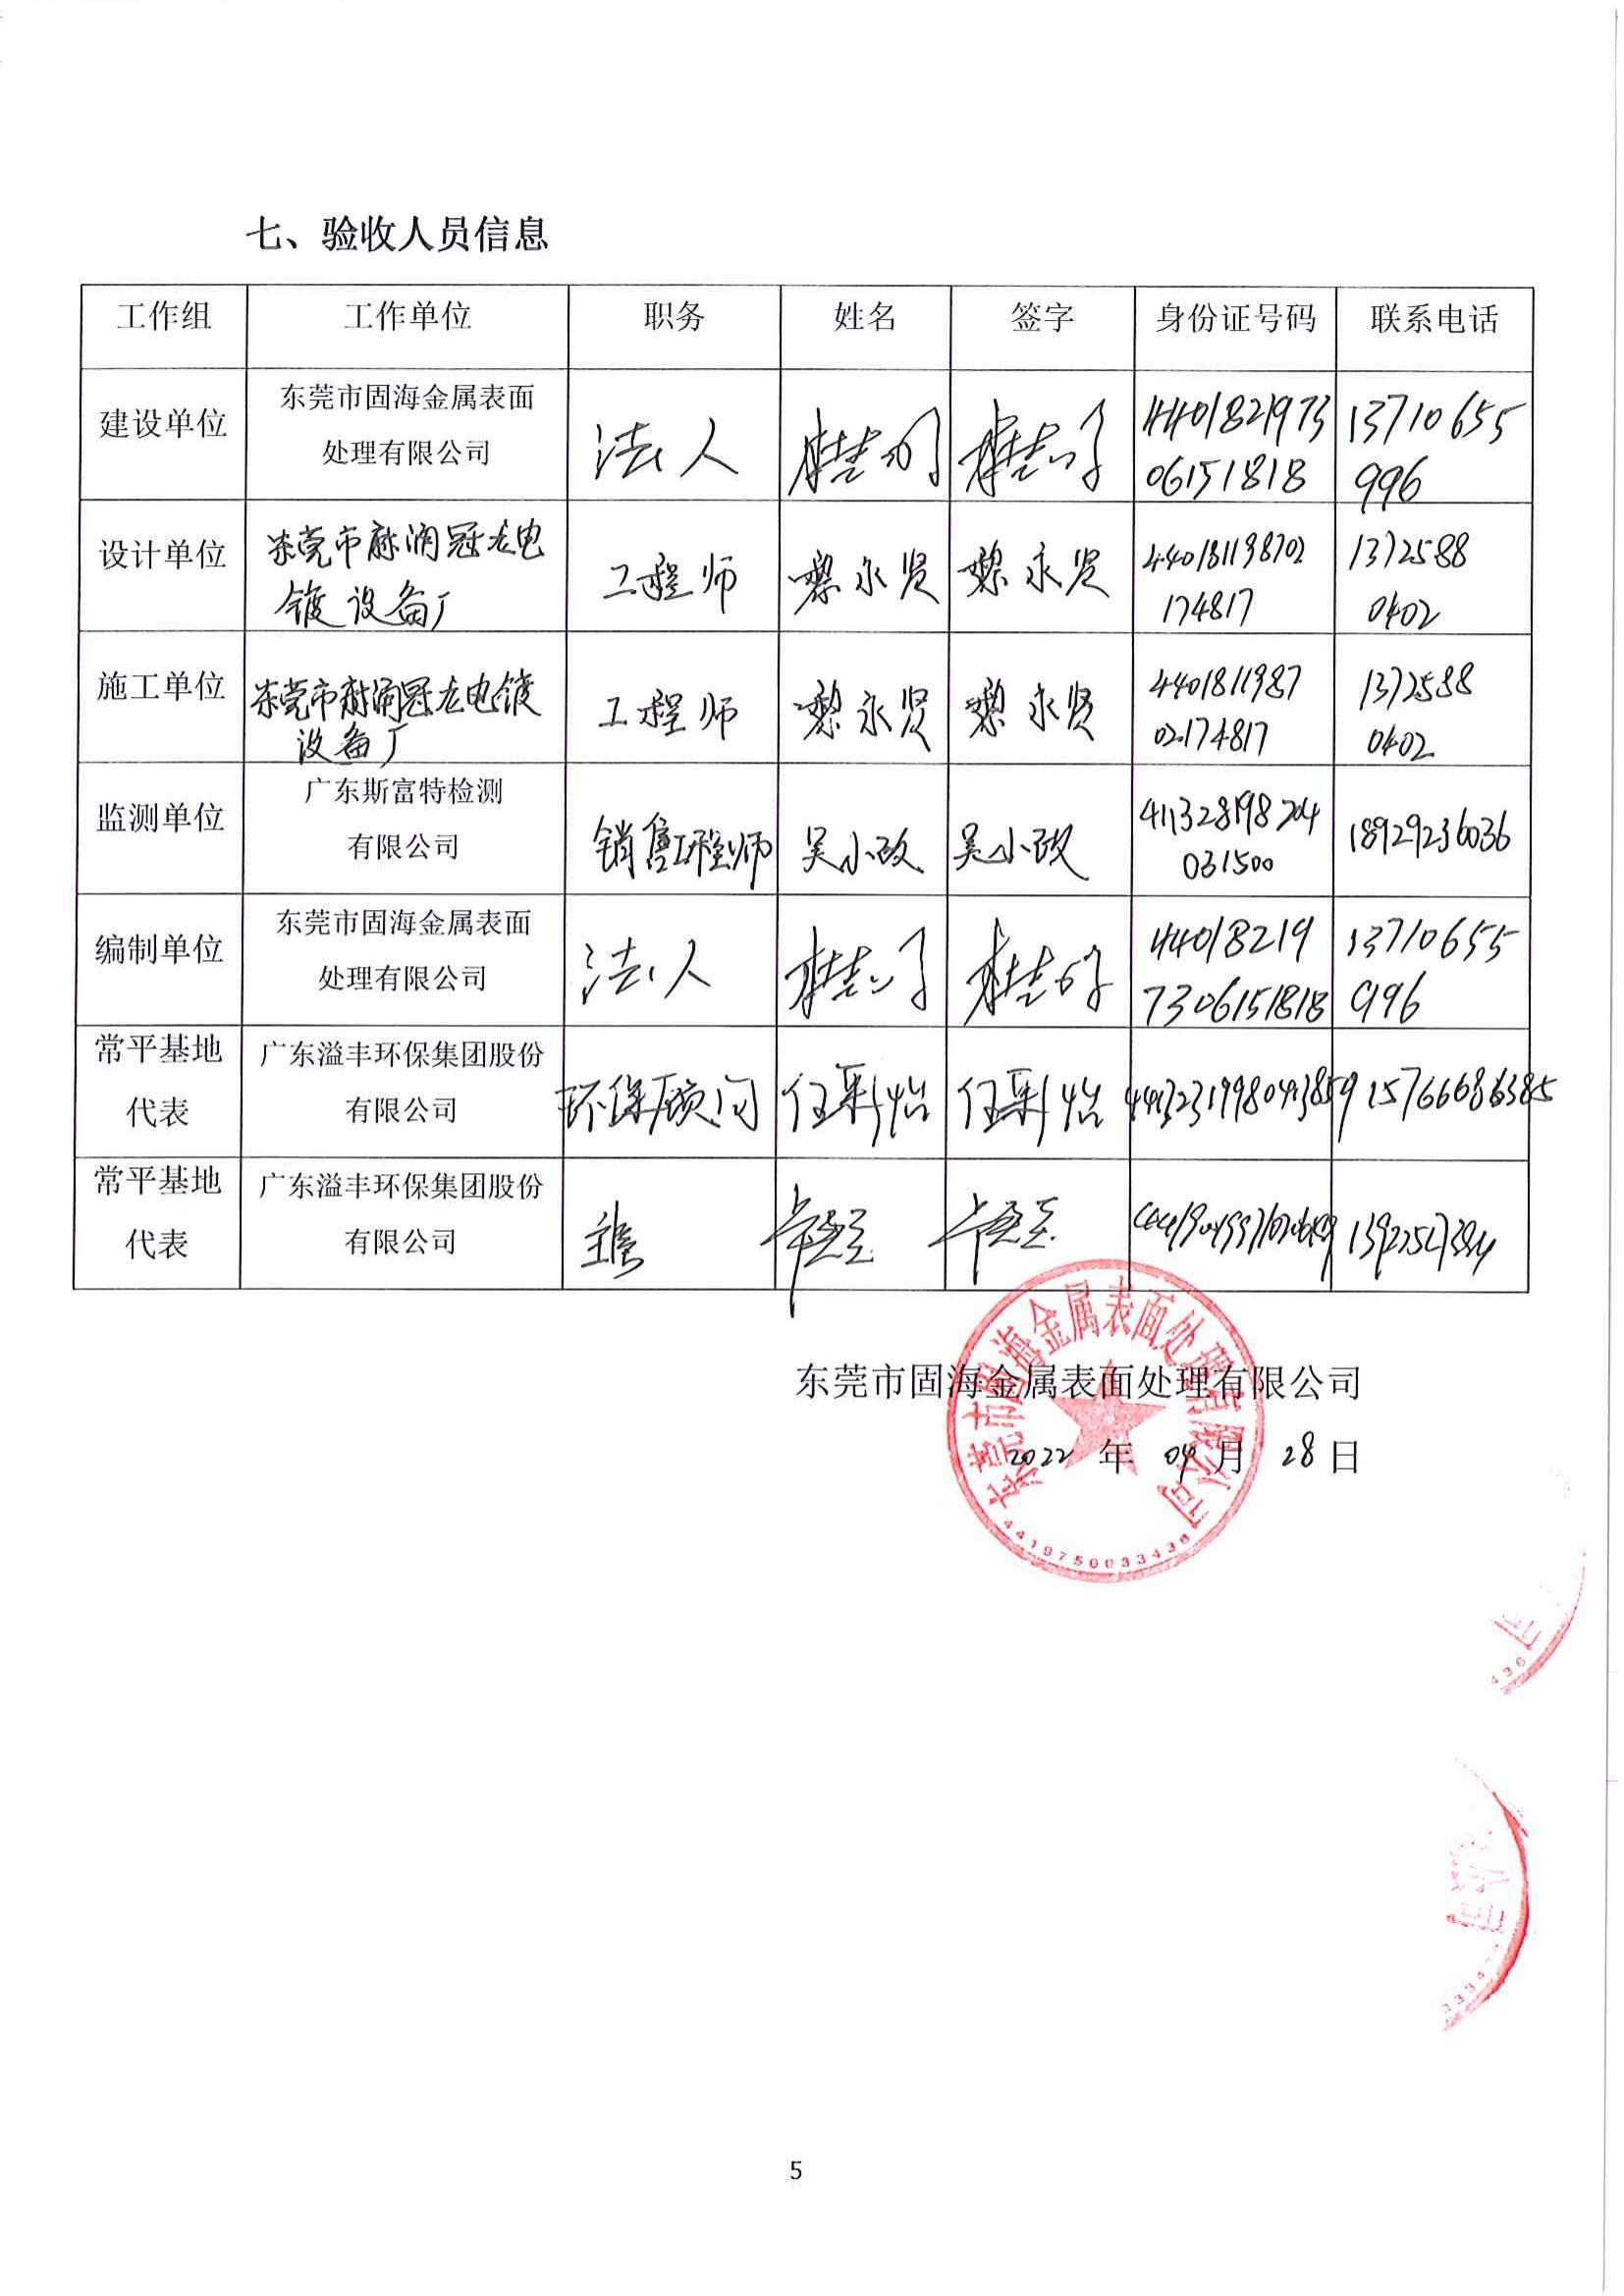 七、验收人员信息
工作组 工作单位 职务 姓名 签字 身份证号码 联系电话
建设单位
东莞市固海金属表面
处理有限公司
法人
4401821973
06151818
13710655
996
设计单位
东莞市麻涌冠龙电
镀设备厂
工程师
黎永贤
黎永贤
440181198702
174817
1372588
0402
施工单位
东莞市麻涌冠龙电镀
设备厂
工程师
黎永贤
黎永贤
4401811987
02174817
1372588
0402
监测单位
广东斯富特检测
有限公司
销售工程师
吴小改
吴小改
411328198204
031500
18929236036
编制单位
东莞市固海金属表面
处理有限公司
法人
44018219
7306151818
13710655
996
常平基地
代表
广东溢丰环保集团股份
有限公司
环保顾问
任彩怡
任彩怡
15766686385
常平基地
代表
广东溢丰环保集团股份
有限公司
东莞市固海金属表面处理有限公司
2022 年 04 月 28 日
东莞市固海金属表面处理有限公司
5